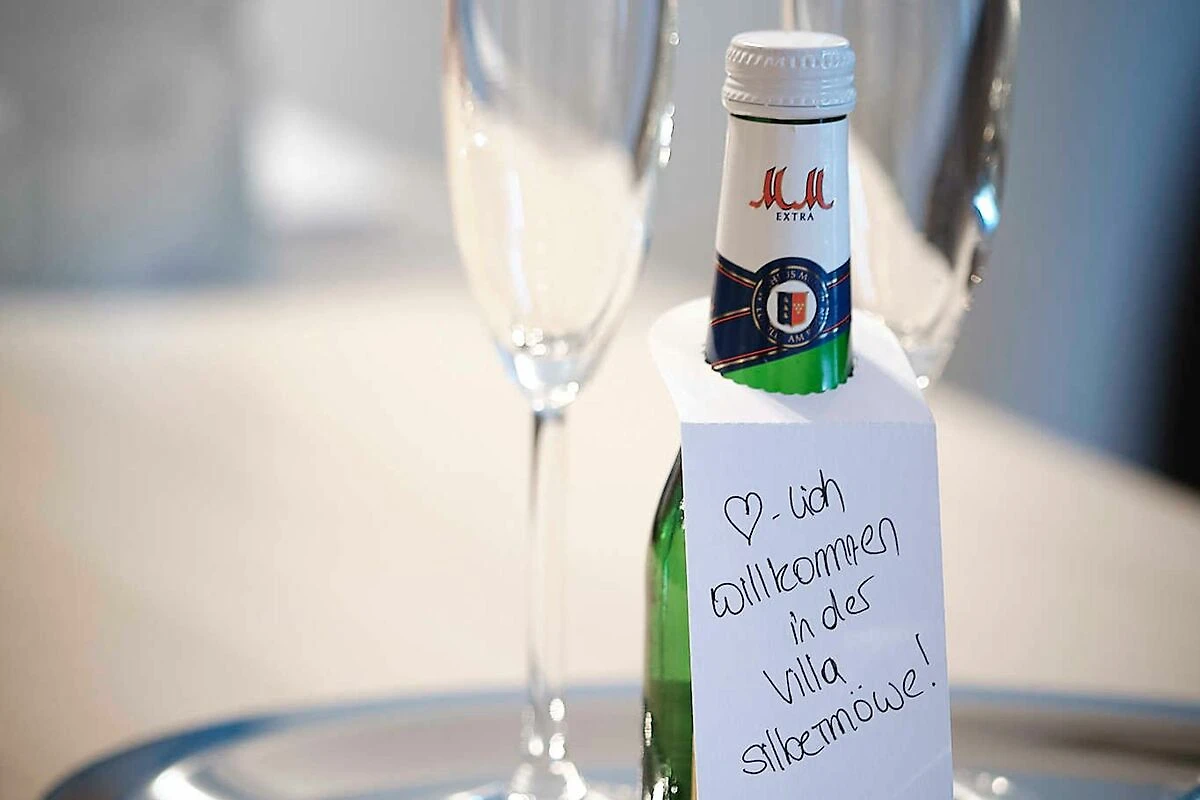 MM
EXTRA
♡-lich
willkommen
in der
Villa
silbermöwe!